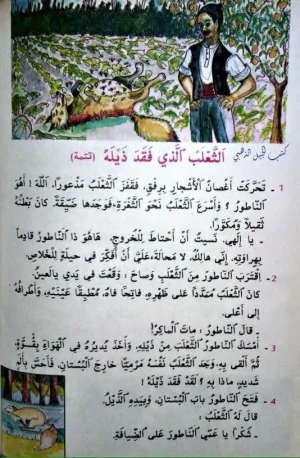 كتب الجيل الذهبي
اَلثَّعْلَبُ اَلَّذِي فَقَدَ ذَيْلَهُ (تتمة)
1 - تَحَرَّكَتْ أَغْصَانُ اَلْأَشْجَارِ بِرِفْقٍ، فَقَفَزَ اَلثَّعْلَبُ مَذْعُورًا. اَللهَ ! أَهُوَ
اَلنَّاطُورُ ؟ وَأَسْرَعَ اَلثَّعْلَبُ نَحْوَ اَلثُّغْرَةِ، فَوَجَدَهَا ضَيِّقَةً. كَانَ بَطْنُهُ
ثَقِيلاً وَمُكَوَّرًا.
- يَا إِلَهِي، نَسِيتُ أَنْ أَحْتَاطَ لِلْخُرُوجِ. هَاهُوَ ذَا اَلنَّاطُورُ قَادِماً
بِهِرَاوَتِهِ. إِنِّي هَالِكٌ، لاَ مَحَالَةَ. عَلَيَّ أَنْ أُفَكِّرَ فِي حِيلَةٍ لِلْخَلاَصِ.
2 - اِقْتَرَبَ اَلنَّاطُورُ مِنَ اَلثَّعْلَبِ وَصَاحَ : وَقَعْتَ فِي يَدِي يَالَعِينُ.
كَانَ اَلثَّعْلَبُ مُمَدَّدًا عَلَى ظَهْرِهِ، فَاتِحًا فَاهُ، مُطْبِقًا عَيْنَيْهِ، وَأَطْرَافُهُ
إِلَى أَعْلَى.
- قَالَ اَلنَّاطُورُ : مَاتَ اَلْمَاكِرُ!
3 - أَمْسَكَ اَلنَّاطُورُ اَلثَّعْلَبَ مِنْ ذَيْلِهِ، وَأَخَذَ يُدِيرُهُ فِي اَلْهَوَاءِ بِقُوَّةٍ،
ثُمَّ أَلْقَى بِهِ. وَجَدَ اَلثَّعْلَبُ نَفْسَهُ مَرْمِيًّا خَارِجَ اَلْبُسْتَانِ، فَأَحَسَّ بِأَلَمٍ
شَدِيدٍ. مَاذَا بِهِ ؟ لَقَدْ فَقَدَ ذَيْلَهُ !
4 - فَتَحَ اَلنَّاطُورُ بَابَ اَلْبُسْتَانِ، وَبِيَدِهِ اَلذَّيْلُ.
قَالَ لَهُ اَلثَّعْلَبُ :
- شُكْرًا يَا عَمِّي اَلنَّاطُورَ عَلَى اَلضِّيَافَةِ.